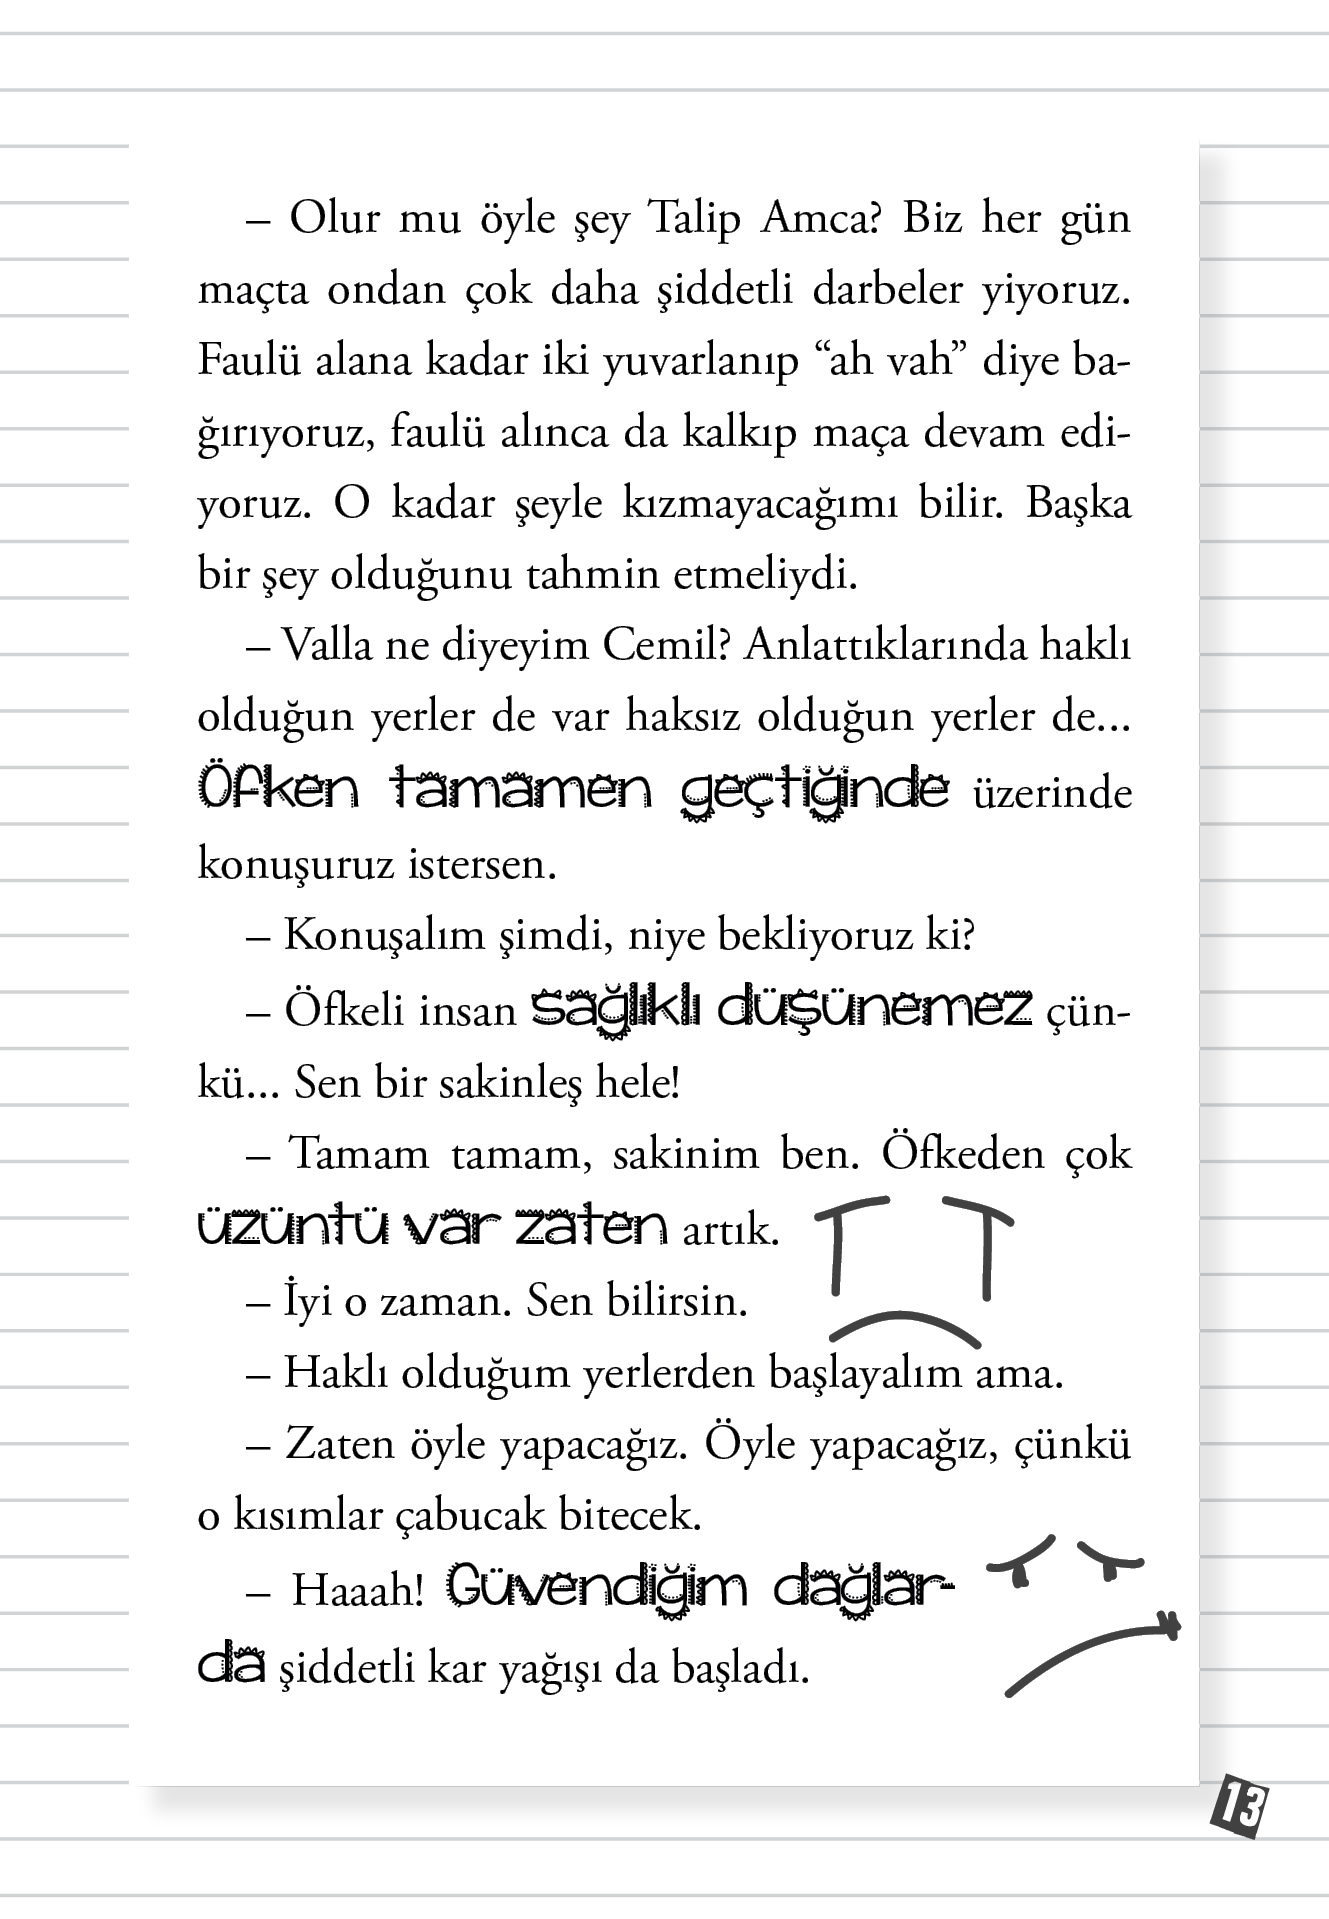 – Olur mu öyle şey Talip Amca? Biz her gün
maçta ondan çok daha şiddetli darbeler yiyoruz.
Faulü alana kadar iki yuvarlanıp “ah vah” diye ba-
ğırıyoruz, faulü alınca da kalkıp maça devam edi-
yoruz. O kadar şeyle kızmayacağımı bilir. Başka
bir şey olduğunu tahmin etmeliydi.
– Valla ne diyeyim Cemil? Anlattıklarında haklı
olduğun yerler de var haksız olduğun yerler de...
Öfken tamamen geçtiğinde üzerinde
konuşuruz istersen.
– Konuşalım şimdi, niye bekliyoruz ki?
– Öfkeli insan sağlıklı düşünemez çün-
kü... Sen bir sakinleş hele!
– Tamam tamam, sakinim ben. Öfkeden çok
üzüntü var zaten artık.
– İyi o zaman. Sen bilirsin.
– Haklı olduğum yerlerden başlayalım ama.
– Zaten öyle yapacağız. Öyle yapacağız, çünkü
o kısımlar çabucak bitecek.
– Haaah! Güvendiğim dağlar-
da şiddetli kar yağışı da başladı.
13